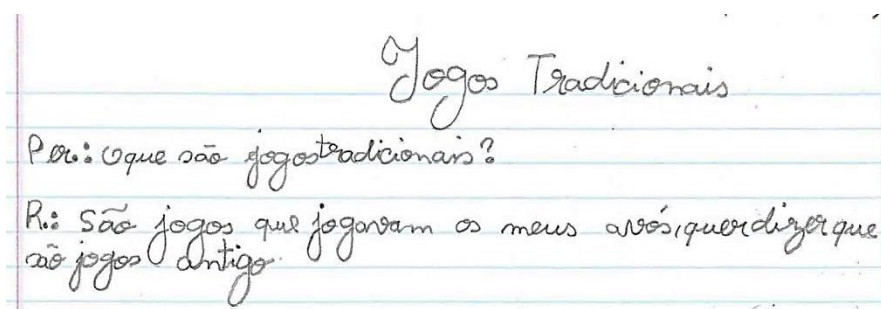 Jogos Tradicionais
Per.: O que são jogos tradicionais?
R.: São jogos que jogavam os meus avós, quer dizer que
são jogos antigo